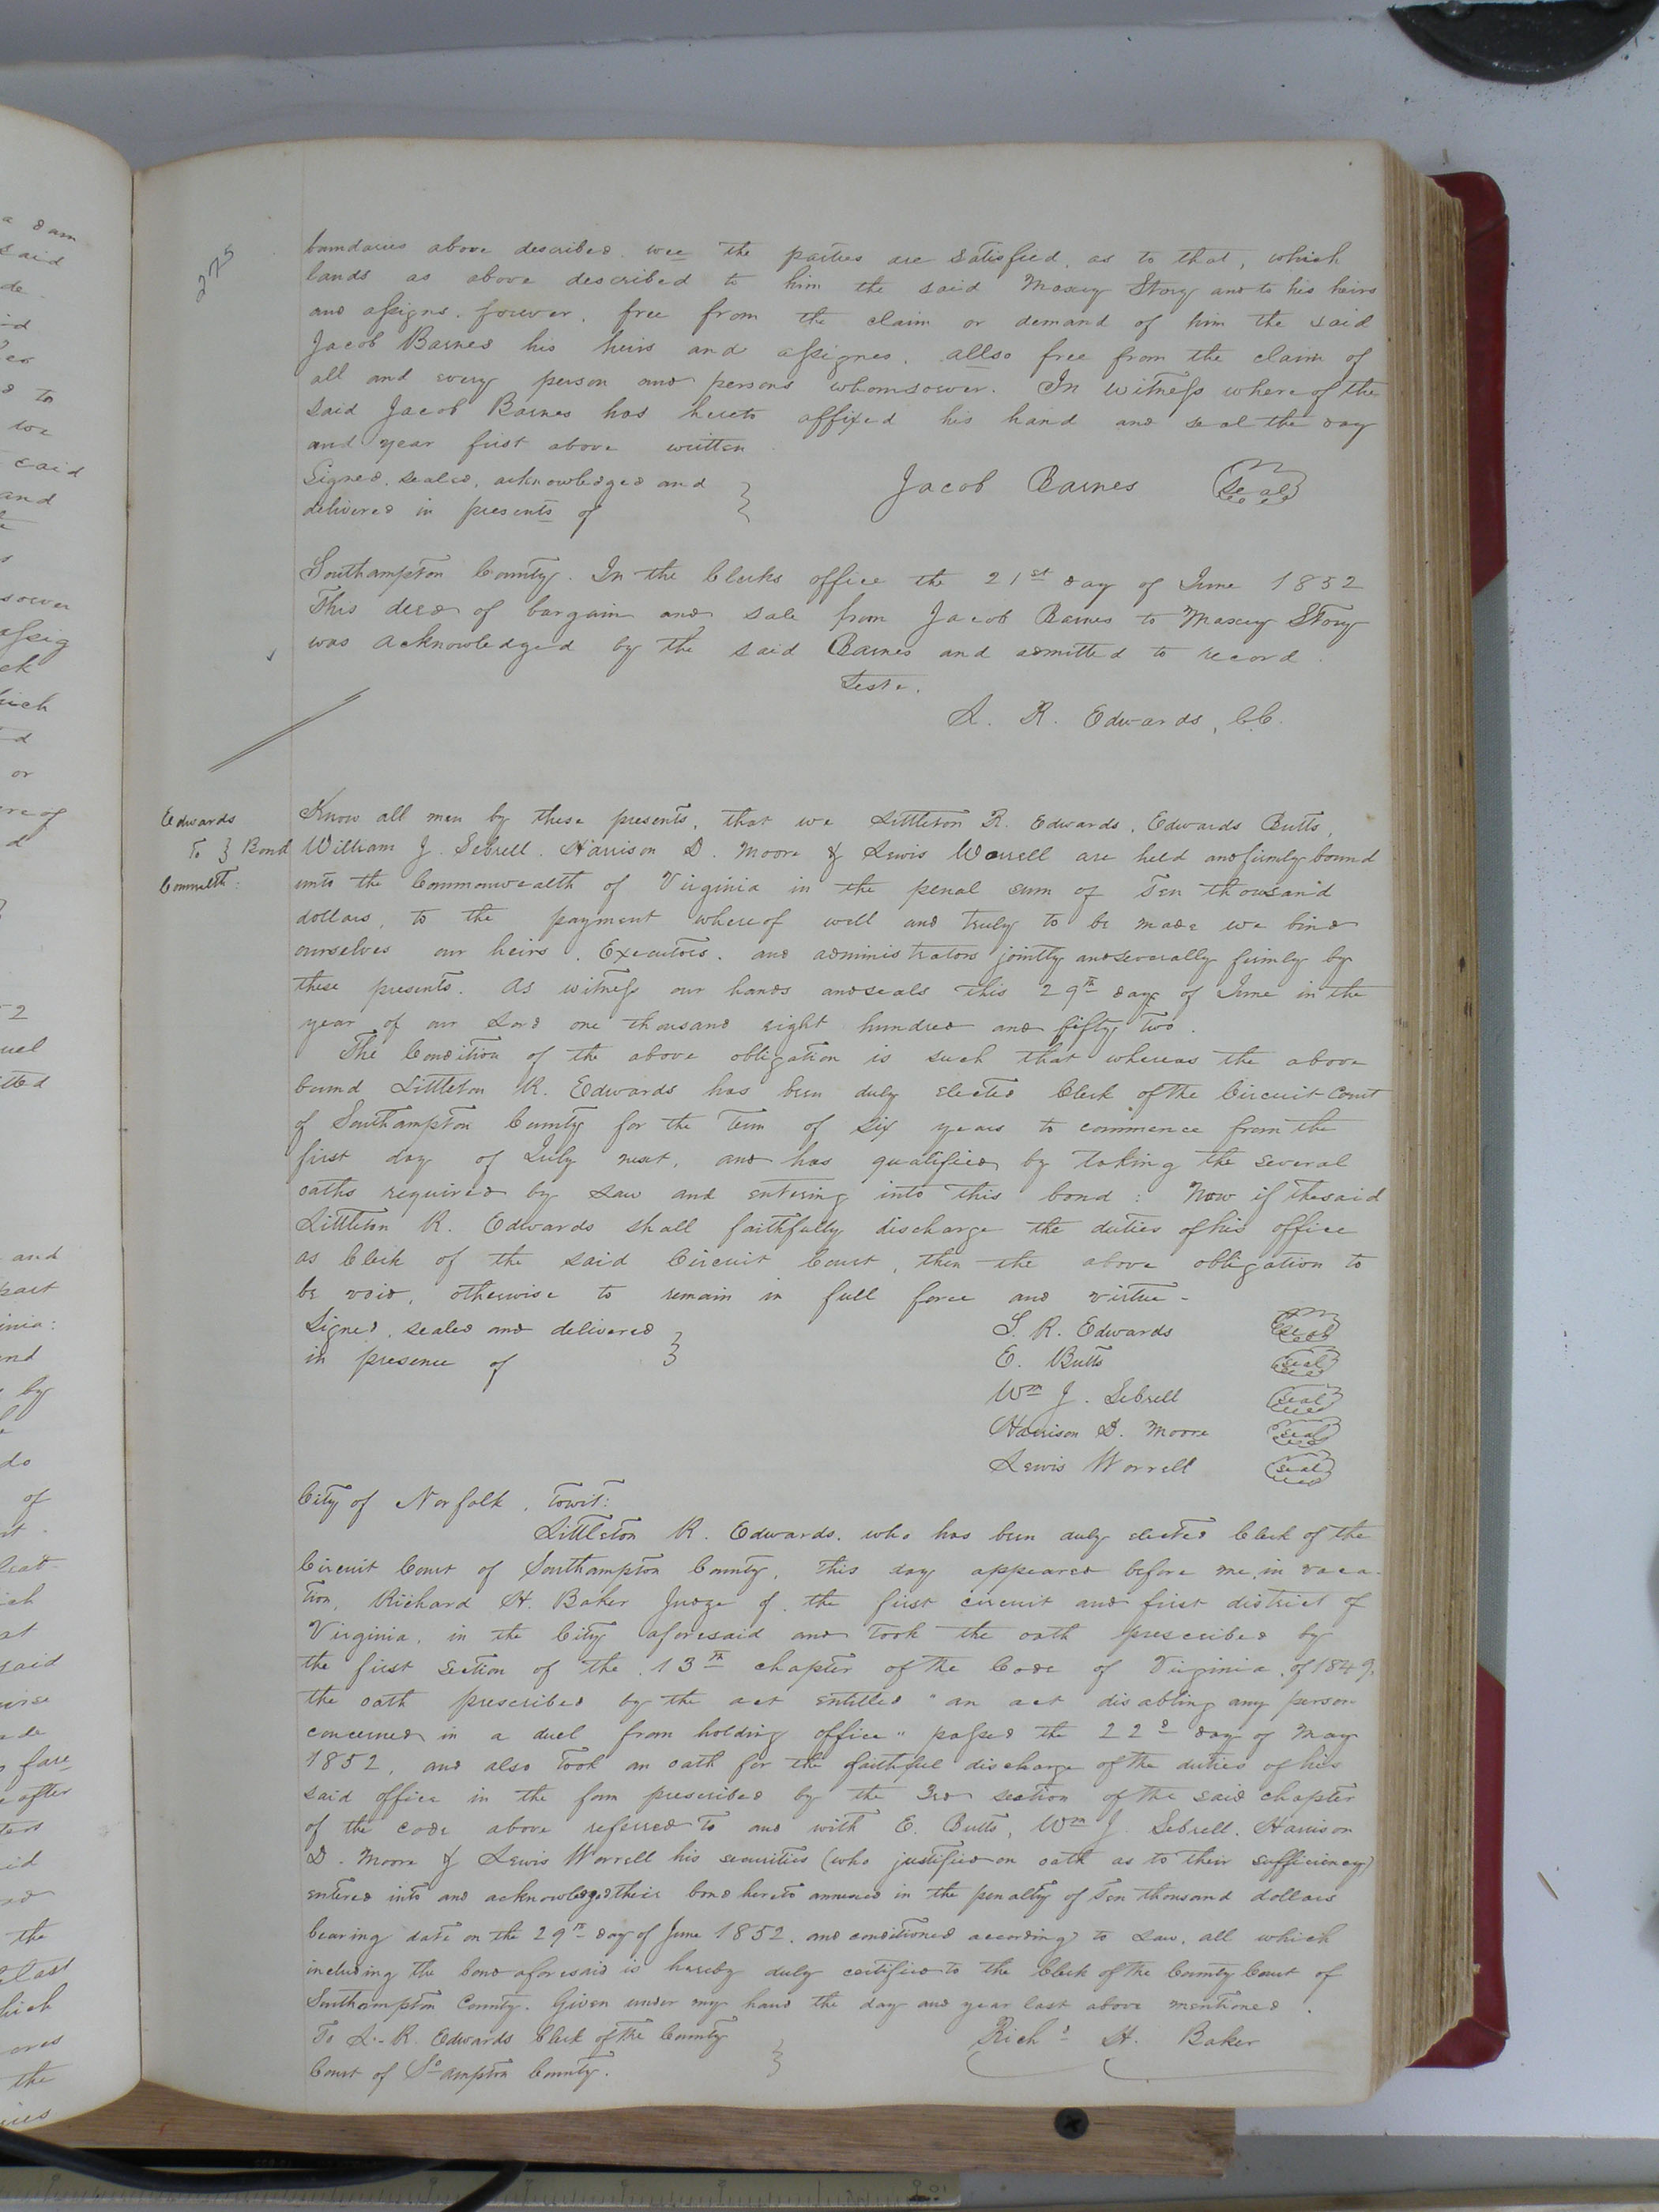 275
boundaries above described wee the parties are satisfied, as to that, which
lands as above described to him the said Maxey Story and to his heirs
and assigns. forever, free from the claim or demand of him the said
Jacob Barnes his heirs and assignes. allso free from the claim of
all and every person and persons whomsoever. In witness where of the
said Jacob Barnes has hereto affixed his hand and seal the day
and year first above written
Signed, sealed, acknowledged and } Jacob Barnes Seal
delivered in presents of
Southampton County. In the Clerks office the 21st day of June 1852
This deed of bargain and sale from Jacob Barnes to Maxey Story
was acknowledged by the said Barnes and admitted to record.
Teste.
L. R. Edwards, C.C.
Edwards
To } Bond
Commlth:
Know all men by these presents, that we Littleton R. Edwards, Edwards Butts,
William J. Sebrell, Harrison D. Moore & Lewis Worrell are held and firmly bound
unto the Commonwealth of Virginia in the penal sum of Ten thousand
dollars, to the payment whereof well and truly to be made we bind
ourselves our heirs, Executors, and administrators jointly and severally firmly by
these presents. As witness our hands and seals this 29th day of June in the
year of our Lord one thousand eight hundred and fifty two.
The Condition of the above obligation is such that whereas the above
bound Littleton R. Edwards has been duly elected Clerk of the Circuit Court
of Southampton County for the Term of six years to commence from the
first day of July next, and has qualified by taking the several
oaths required by Law and entering into this bond: Now if the said
Littleton R. Edwards shall faithfully discharge the duties of his office
as Clerk of the said Circuit Court, then the above obligation to
be void, otherwise to remain in full force and virtue-
Signed, sealed and delivered } L. R. Edwards Seal
in presence of E. Butts Seal
Wm J. Sebrell Seal
Harrison D. Moore Seal
Lewis Worrell Seal
City of Norfolk, Towit:
Littleton R. Edwards, who has been duly elected Clerk of the
Circuit Court of Southampton County, this day appeared before me, in vaca-
tion, Richard H. Baker Judge of the first circuit and first district of
Virginia, in the City aforesaid and took the oath prescribed by
the first section of the 13th chapter of the Code of Virginia, of 1849,
the oath prescribed by the act entitled "an act disabling any person
concerned in a duel from holding office" passed the 22d day of May
1852, and also took an oath for the faithful discharge of the duties of his
said office in the form prescribed by the 3rd section of the said chapter
of the code above referred to and with E. Butts, Wm J. Sebrell, Harrison
D. Moore & Lewis Worrell his securities (who justified on oath as to their sufficiency)
entered into and acknowledged their bond hereto annexed in the penalty of Ten thousand dollars
bearing date on the 29th day of June 1852, and conditioned according to Law, all which
including the bond aforesaid is hereby duly certified to the Clerk of the County Court of
Southampton County. Given under my hand the day and year last above mentioned.
To L. R. Edwards Clerk of the County } Richd H. Baker
Court of So ampton County.